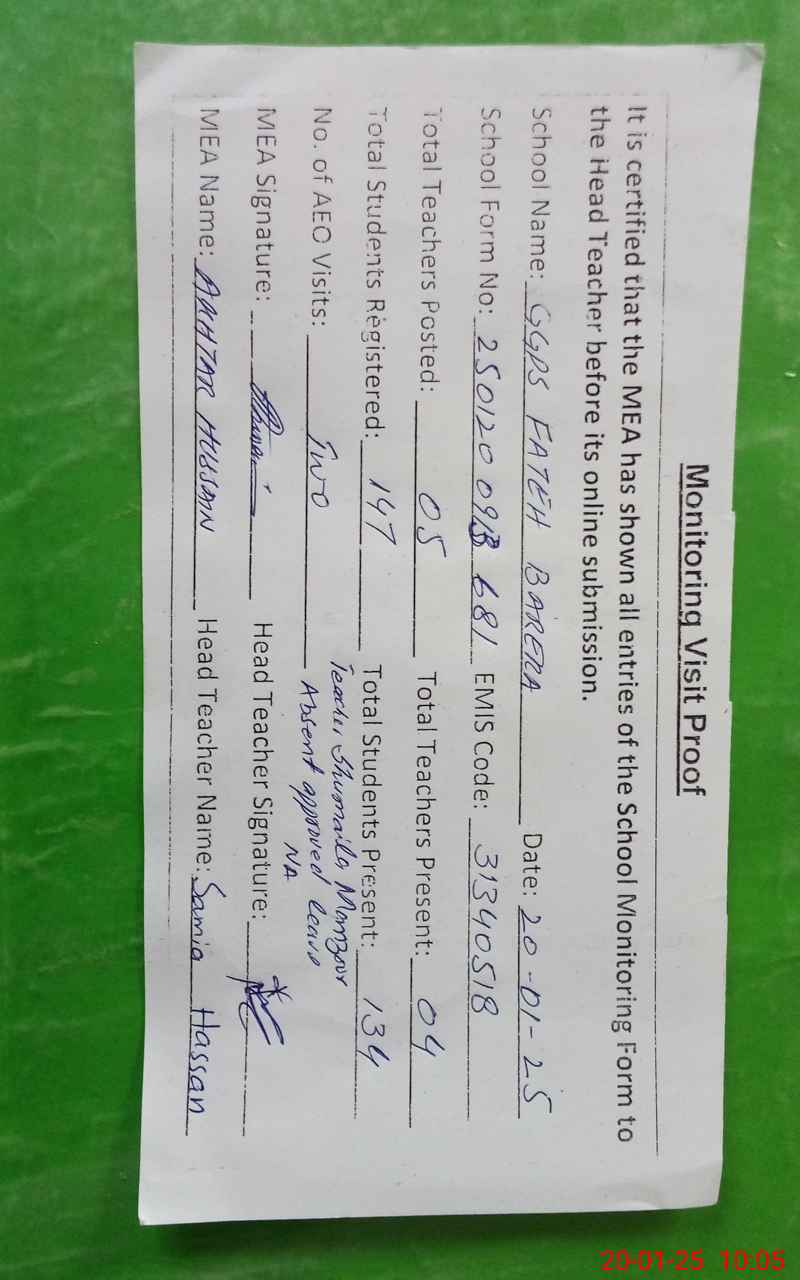 Monitoring Visit Proof
It is certified that the MEA has shown all entries of the School Monitoring Form to
the Head Teacher before its online submission.
School Name: GGPS FATEH BARERA Date: 20-01-25
School Form No: 250120 0918 681 EMIS Code: 31340518
Total Teachers Posted: 05 Total Teachers Present: 04
Total Students Registered: 147 Total Students Present: 134
Teacher Shumaila Manzoor
No. of AEO Visits: Two Absent approved leave
NA
MEA Signature: Head Teacher Signature:
MEA Name: AKHTAR HUSSAIN Head Teacher Name: Samia Hassan
20-01-25 10:05